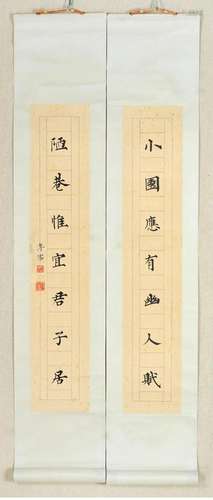 小園應有幽人賦
陋巷惟宜君子居